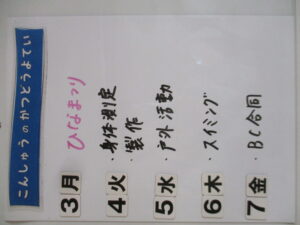 こんしゅうのかつどうよてい
3月 ひなまつり
4火 ・身体測定
・製作
5水 ・戸外活動
6木 ・スイミング
7金 ・BC合同